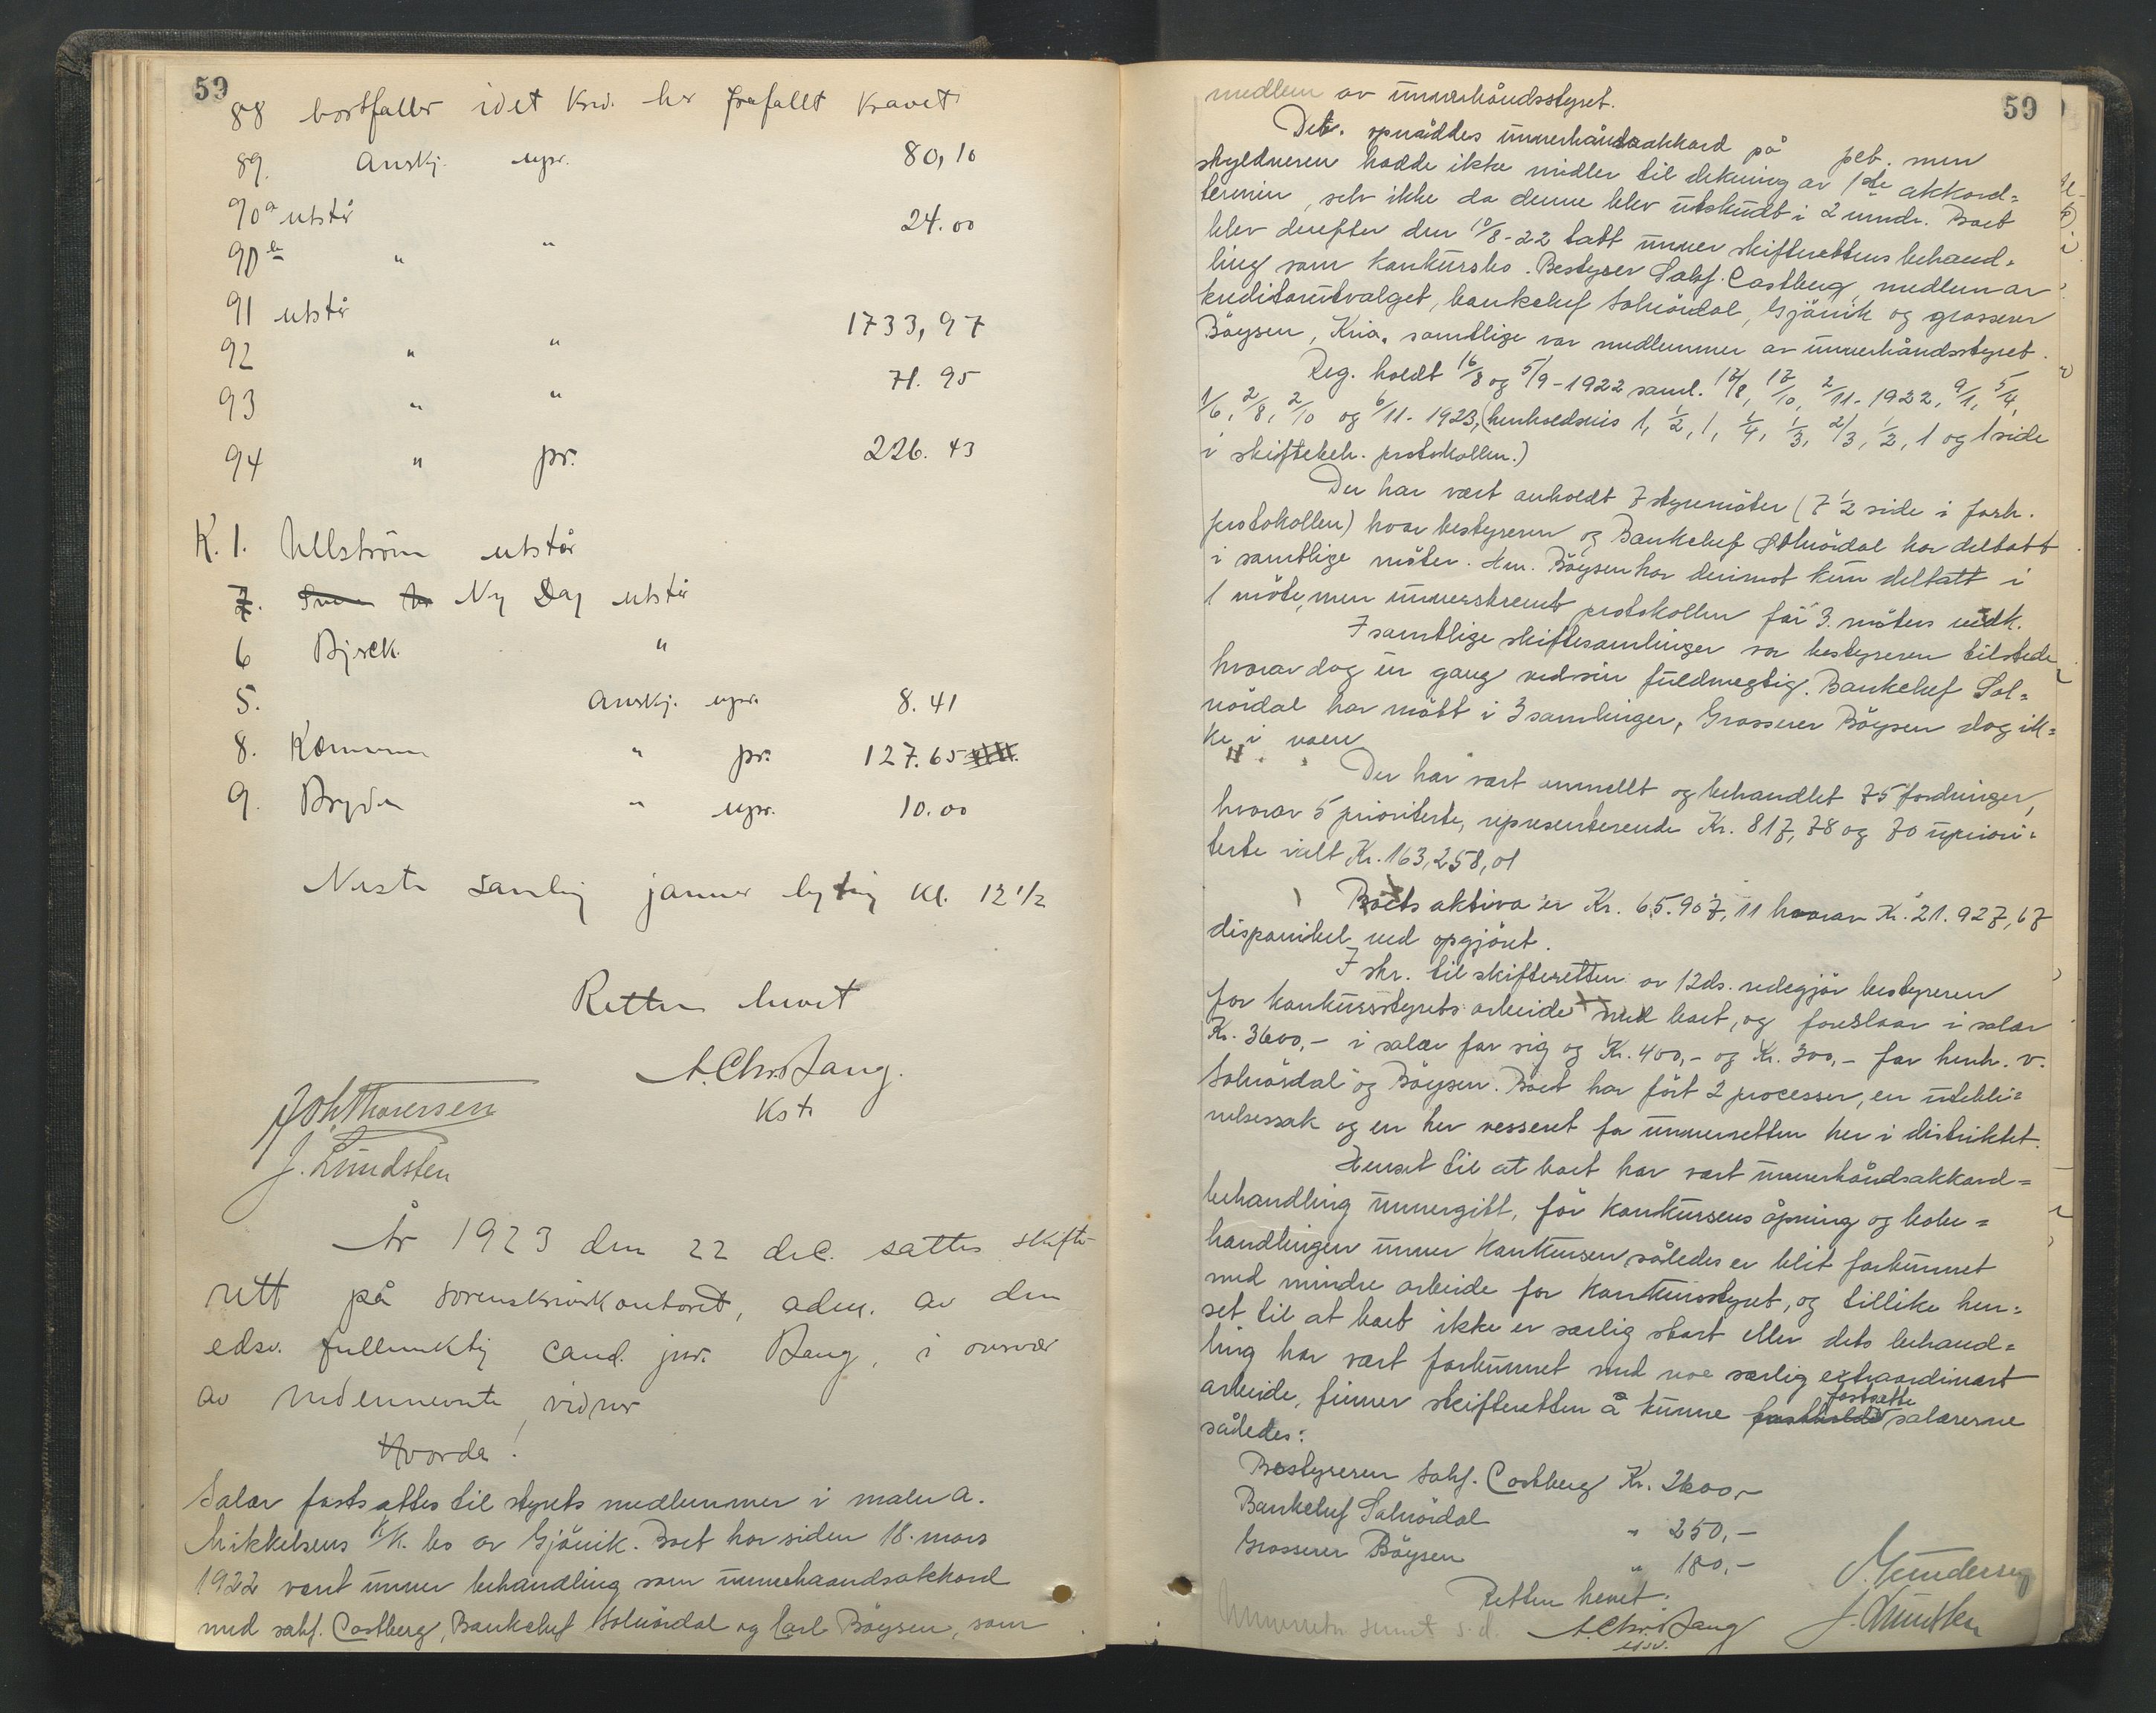 59
88 bortfaller idet kred. har frafallt kravet
89. Anskj. upr. 80,10
90a utstår 24.00
90b " "
91 utstår 1733,97
92 " " 71.95
93 " "
94 " pr. 226.43
K. 1. Ullström utstår
7. Ny Dag utstår
6 Bjerck. "
5. Anskj. upr. 8.41
8. Kommun " pr. 127.65
9. Bryde " upr. 10.00
Neste samling januar kl. 12 1/2
Retten hevet
A. Chr. Bang.
Kst.
Joh Thoresen
J. Lundsten
År 1923 den 22 dec. sattes skifte-
rett på sorenskriverkontoret, adm. av den
edsv. fullmektig cand. jur. Bang, i overvær
av nedennevnte vidner
Hvorda!
Salær fastsattes til styrets medlemmer i maler A.
Mikkelsens K/K. bo av Gjövik. Boet har siden 18. mars
1922 vært unner behandling som unnerhaandsakkord
med sakf. Castberg, Bankchef Solnördal og Carl Böysen, som
59
medlem av unnerhåndsstyret.
Det. opnåddes unnerhåndsakkord på pct. men
skyldneren hadde ikke midler til dekning av 1ste akkord=
termin, selv ikke da denne blev utskudt i 2 mndr. Boet
blev derefter den 10/8-22 tatt unner skifterettens behand=
ling som konkursbo. Bestyrer Sakf. Castberg, medlem av
kreditorutvalget, bankchef Solnördal, Gjövik og grosserer
Böysen, Kria, samtlige var medlemmer av unnerhåndsstyret.
Reg. holdt 16/8 og 5/9-1922 saml. 17/8, 17/10, 2/11-1922, 9/1, 5/4,
1/6, 2/8, 2/10 og 6/11-1923, (henholdsvis 1, 1/2, 1, 1/4, 1/3, 2/3, 1/2, 1 og 1 side
i skiftebeh. protokollen.)
Der har vært avholdt 7 styremöter (7 1/2 side i forh.
protokollen) hvor bestyreren og Bankchef Solnördal har deltatt
i samtlige möter. Hr. Böysen har derimot kun deltatt i
1 möte, men unnerskrevet protokollen for 3. möters vedk.
I samtlige skiftesamlinger var bestyreren tilstede
hvorav dog en gang ved sin fuldmegtig. Bankchef Sol=
nördal har mött i 3 samlinger, Grosserer Böysen dog ik=
ke i noen
Der har vært anmellt og behandlet 75 fordringer,
hvorav 5 prioriterte, representerende Kr. 817,78 og 70 upriori=
terte ialt Kr. 163,258,01
Boets aktiva er Kr. 65.907,11 hvorav Kr. 21.927,67
disponibel ved opgjöret.
I skr. til skifteretten av 12ds. redegjör bestyreren
for konkursstyrets arbeide med boet, og foreslaar i salær
Kr. 3600,- i salær for sig og Kr. 400,- og Kr. 300,- for henh. v.
Solnördal og Böysen. Boet har fört 2 processer, en utebli=
velsessak og en her vesseret for unnerretten her i distriktet.
Henset til at boet har vært unnerhåndsakkord=
behandling unnergitt, för konkursens åpning og bobe=
handlingen unner konkursen således er blit forbunnet
med mindre arbeide for konkursstyret, og tillike hen=
set til at boet ikke er særlig stort eller dets behand=
ling har vært forbunnet med noe særlig extraordinært
arbeide, finner skifteretten å kunne fastsette salærerne
således:
Bestyreren Sakf. Castberg Kr. 2600,-
Bankchef Solnördal " 250,-
Grosserer Böysen " 180,-
Retten hevet.
A. Chr. Bang
edsv.
O. Gundersen
J. Lundsten